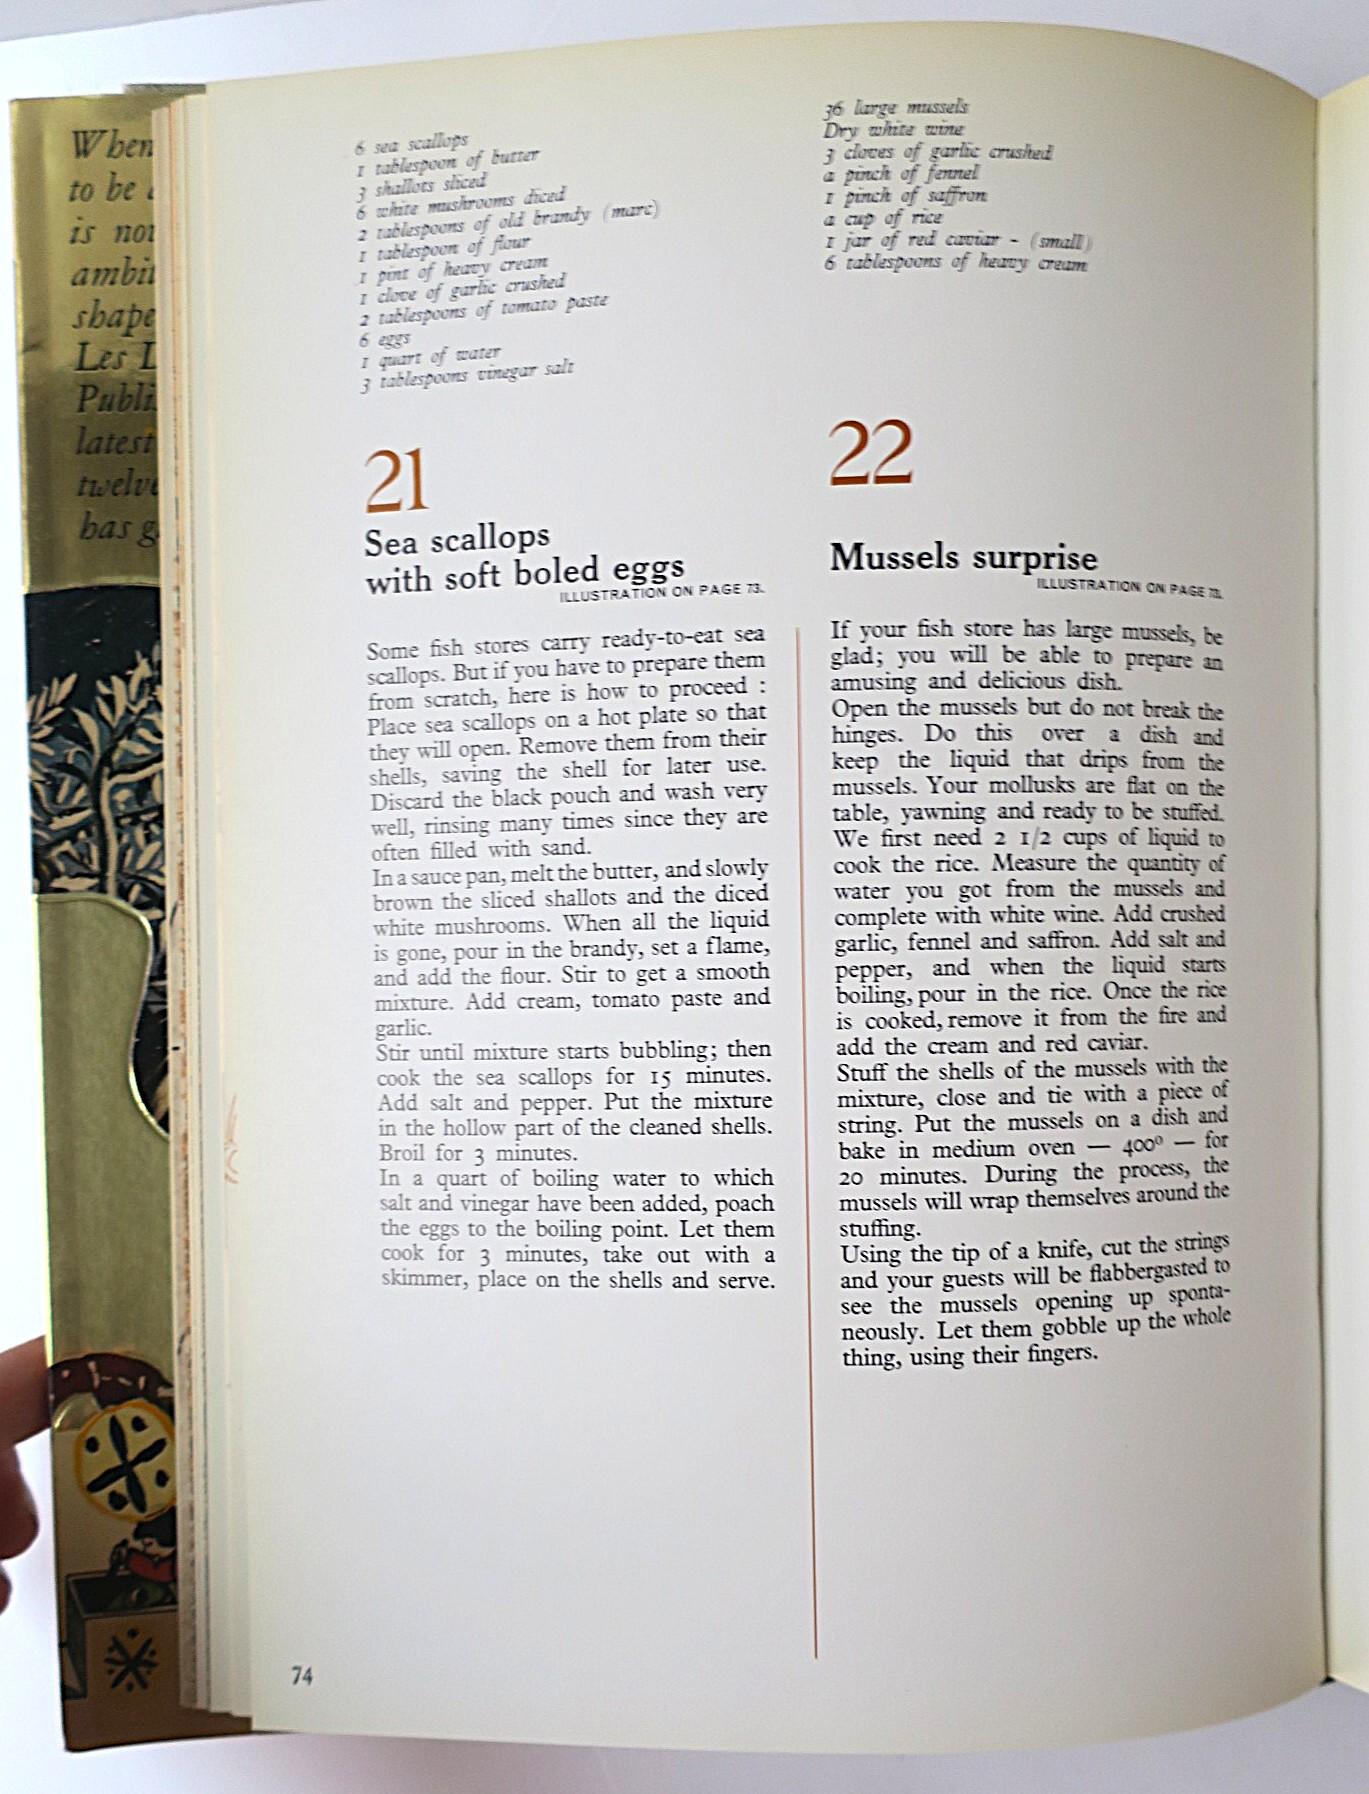 When
to be
is not
ambit
shape
Les L
Publi
latest
twelve
has g
6 sea scallops
1 tablespoon of butter
3 shallots sliced
6 white mushrooms diced
2 tablespoons of old brandy (marc)
1 tablespoon of flour
1 pint of heavy cream
1 clove of garlic crushed
2 tablespoons of tomato paste
6 eggs
1 quart of water
3 tablespoons vinegar salt
21
Sea scallops
with soft boled eggs
ILLUSTRATION ON PAGE 73.
Some fish stores carry ready-to-eat sea
scallops. But if you have to prepare them
from scratch, here is how to proceed :
Place sea scallops on a hot plate so that
they will open. Remove them from their
shells, saving the shell for later use.
Discard the black pouch and wash very
well, rinsing many times since they are
often filled with sand.
In a sauce pan, melt the butter, and slowly
brown the sliced shallots and the diced
white mushrooms. When all the liquid
is gone, pour in the brandy, set a flame,
and add the flour. Stir to get a smooth
mixture. Add cream, tomato paste and
garlic.
Stir until mixture starts bubbling; then
cook the sea scallops for 15 minutes.
Add salt and pepper. Put the mixture
in the hollow part of the cleaned shells.
Broil for 3 minutes.
In a quart of boiling water to which
salt and vinegar have been added, poach
the eggs to the boiling point. Let them
cook for 3 minutes, take out with a
skimmer, place on the shells and serve.
36 large mussels
Dry white wine
3 cloves of garlic crushed
a pinch of fennel
1 pinch of saffron
a cup of rice
1 jar of red caviar - (small)
6 tablespoons of heavy cream
22
Mussels surprise
ILLUSTRATION ON PAGE 73.
If your fish store has large mussels, be
glad; you will be able to prepare an
amusing and delicious dish.
Open the mussels but do not break the
hinges. Do this over a dish and
keep the liquid that drips from the
mussels. Your mollusks are flat on the
table, yawning and ready to be stuffed.
We first need 2 1/2 cups of liquid to
cook the rice. Measure the quantity of
water you got from the mussels and
complete with white wine. Add crushed
garlic, fennel and saffron. Add salt and
pepper, and when the liquid starts
boiling, pour in the rice. Once the rice
is cooked, remove it from the fire and
add the cream and red caviar.
Stuff the shells of the mussels with the
mixture, close and tie with a piece of
string. Put the mussels on a dish and
bake in medium oven — 400° — for
20 minutes. During the process, the
mussels will wrap themselves around the
stuffing.
Using the tip of a knife, cut the strings
and your guests will be flabbergasted to
see the mussels opening up sponta-
neously. Let them gobble up the whole
thing, using their fingers.
74